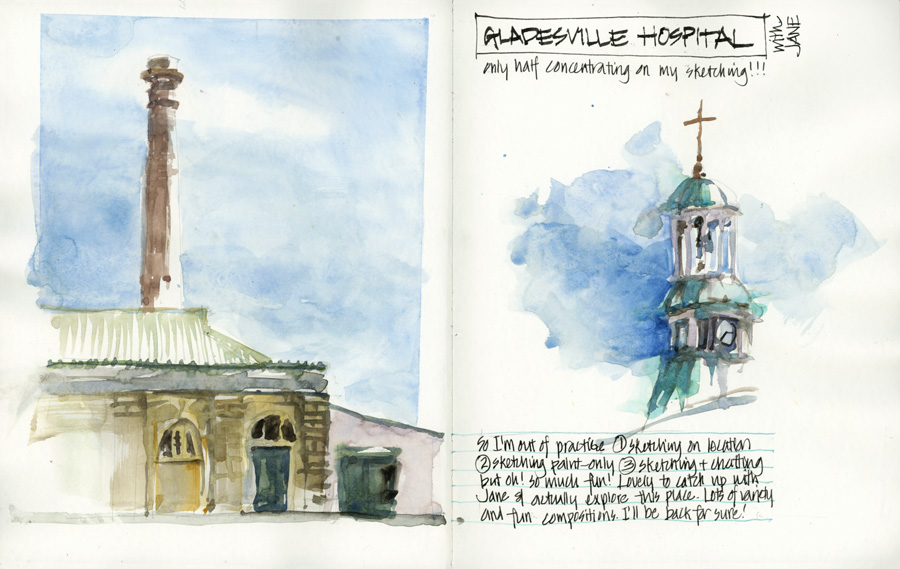 GLADESVILLE HOSPITAL
WITH JANE
only half concentrating on my sketching!!!
So I'm out of practise ① sketching on location
② sketching paint-only ③ sketching + chatting
but oh! so much fun! Lovely to catch up with
Jane & actually explore this place. Lots of variety
and fun compositions. I'll be back for sure!